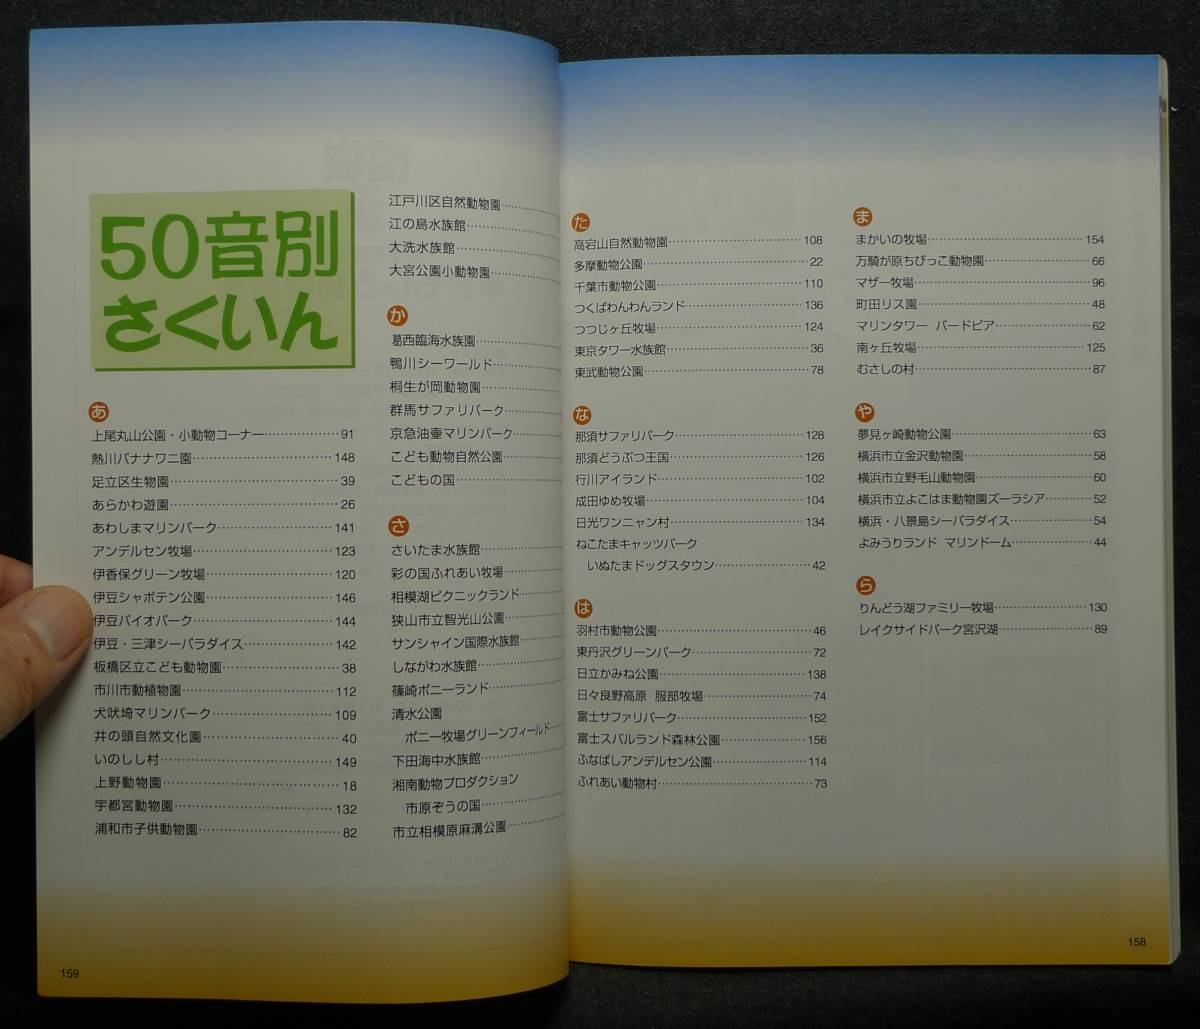 50音別
さくいん
あ
上尾丸山公園・小動物コーナー 91
熱川バナナワニ園 148
足立区生物園 39
あらかわ遊園 26
あわしまマリンパーク 141
アンデルセン牧場 123
伊香保グリーン牧場 120
伊豆シャボテン公園 146
伊豆バイオパーク 144
伊豆・三津シーパラダイス 142
板橋区立こども動物園 38
市川市動植物園 112
犬吠埼マリンパーク 109
井の頭自然文化園 40
いのしし村 149
上野動物園 18
宇都宮動物園 132
浦和市子供動物園 82
江戸川区自然動物園
江の島水族館
大洗水族館
大宮公園小動物園
か
葛西臨海水族園
鴨川シーワールド
桐生が岡動物園
群馬サファリパーク
京急油壷マリンパーク
こども動物自然公園
こどもの国
さ
さいたま水族館
彩の国ふれあい牧場
相模湖ピクニックランド
狭山市立智光山公園
サンシャイン国際水族館
しながわ水族館
篠崎ポニーランド
清水公園
ポニー牧場グリーンフィールド
下田海中水族館
湘南動物プロダクション
市原ぞうの国
市立相模原麻溝公園
159
た
高宕山自然動物園 108
多摩動物公園 22
千葉市動物公園 110
つくばわんわんランド 136
つつじヶ丘牧場 124
東京タワー水族館 36
東武動物公園 78
な
那須サファリパーク 128
那須どうぶつ王国 126
行川アイランド 102
成田ゆめ牧場 104
日光ワンニャン村 134
ねこたまキャッツパーク
いぬたまドッグスタウン 42
は
羽村市動物公園 46
東丹沢グリーンパーク 72
日立かみね公園 138
日々良野高原 服部牧場 74
富士サファリパーク 152
富士スバルランド森林公園 156
ふなばしアンデルセン公園 114
ふれあい動物村 73
ま
まかいの牧場 154
万騎が原ちびっこ動物園 66
マザー牧場 96
町田リス園 48
マリンタワー バードピア 62
南ヶ丘牧場 125
むさしの村 87
や
夢見ヶ崎動物公園 63
横浜市立金沢動物園 58
横浜市立野毛山動物園 60
横浜市立よこはま動物園ズーラシア 52
横浜・八景島シーパラダイス 54
よみうりランド マリンドーム 44
ら
りんどう湖ファミリー牧場 130
レイクサイドパーク宮沢湖 89
158